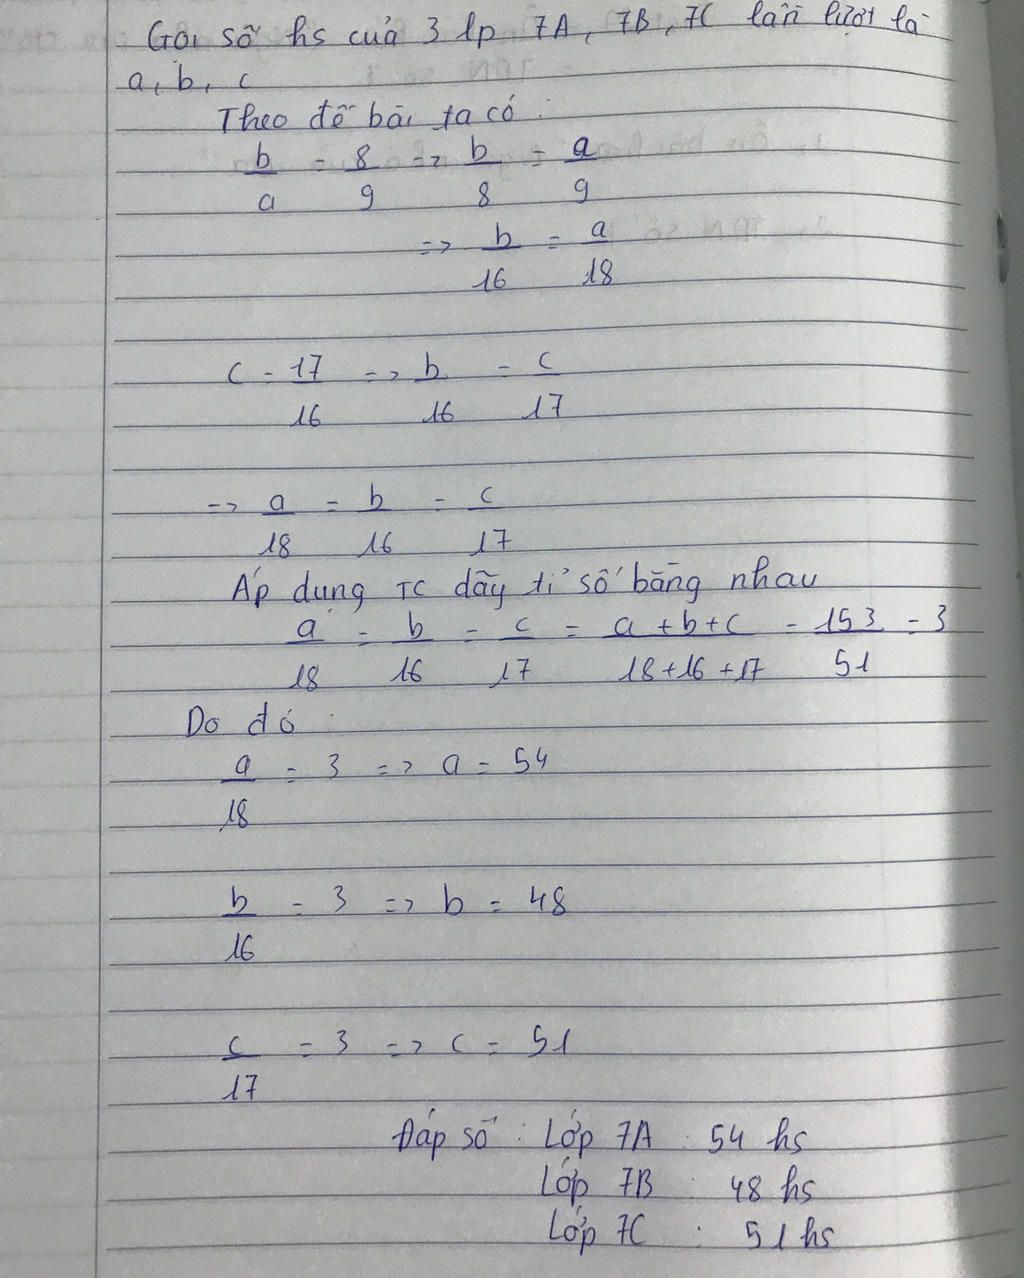 Gọi số hs của 3 lp 7A, 7B, 7C lần lượt là
a, b, c
Theo đề bài ta có :
b/a = 8/9 => b/8 = a/9
=> b/16 = a/18
c = 17/16 => b/16 = c/17
=> a/18 = b/16 = c/17
Áp dụng TC dãy tỉ số bằng nhau
a/18 = b/16 = c/17 = a+b+c/18+16+17 = 153/51 = 3
Do đó :
a/18 = 3 => a = 54
b/16 = 3 => b = 48
c/17 = 3 => c = 51
Đáp số : Lớp 7A : 54 hs
Lớp 7B : 48 hs
Lớp 7C : 51 hs